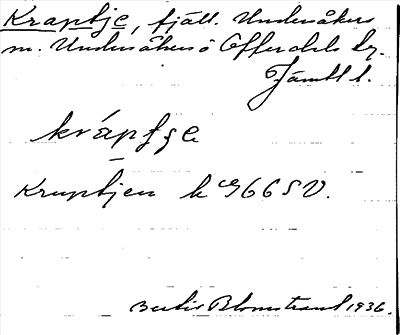 Kraptje, fjäll. Undersåkers
m. Undersåkers o Offerdals hg.
Jämtl l.
kráptje
Kruptjen k G66SV.
Bertil Blomstrand 1936.